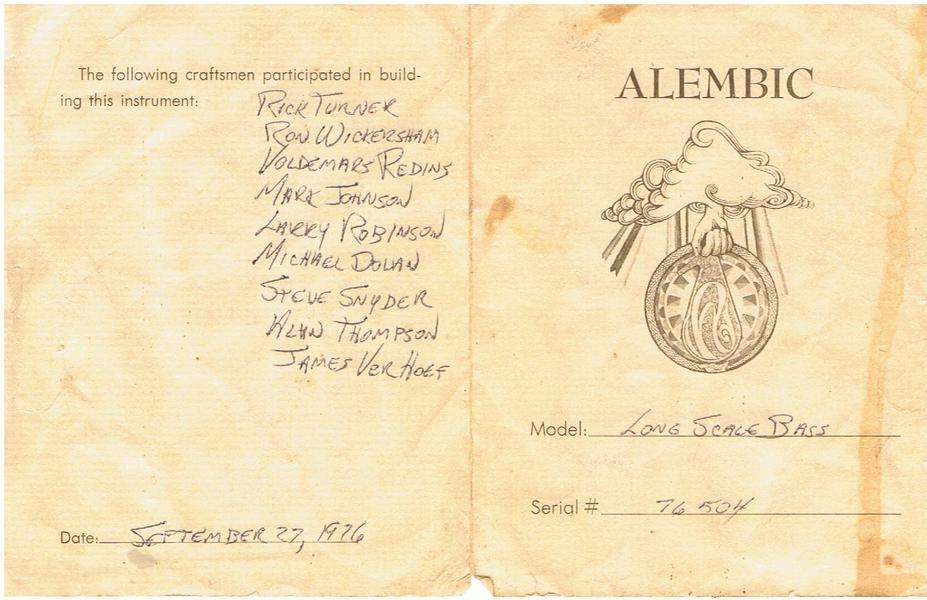 The following craftsmen participated in build-
ing this instrument:
RICK TURNER
RON WICKERSHAM
VOLDEMARS REDINS
MARK JOHNSON
LARRY ROBINSON
MICHAEL DOLAN
STEVE SNYDER
ALAN THOMPSON
JAMES VERHOEF
Date: SEPTEMBER 27, 1976
ALEMBIC
Model: LONG SCALE BASS
Serial # 76 504